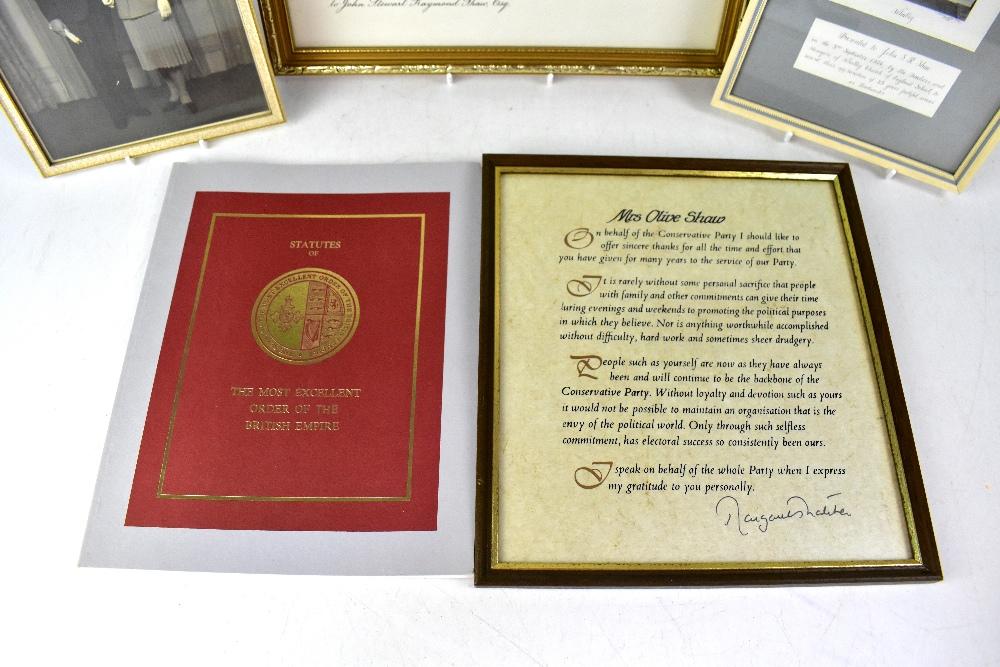 to John Stewart Raymond Shaw, Esq.
Whalley
Presented to John S R Shaw
STATUTES
OF
EXCELLENT ORDER OF THE
THE MOST EXCELLENT
ORDER OF THE
BRITISH EMPIRE
Mrs Olive Shaw
On behalf of the Conservative Party I should like to
offer sincere thanks for all the time and effort that
you have given for many years to the service of our Party.
It is rarely without some personal sacrifice that people
with family and other commitments can give their time
during evenings and weekends to promoting the political purposes
in which they believe. Nor is anything worthwhile accomplished
without difficulty, hard work and sometimes sheer drudgery.
People such as yourself are now as they have always
been and will continue to be the backbone of the
Conservative Party. Without loyalty and devotion such as yours
it would not be possible to maintain an organisation that is the
envy of the political world. Only through such selfless
commitment, has electoral success so consistently been ours.
I speak on behalf of the whole Party when I express
my gratitude to you personally.
Margaret Thatcher